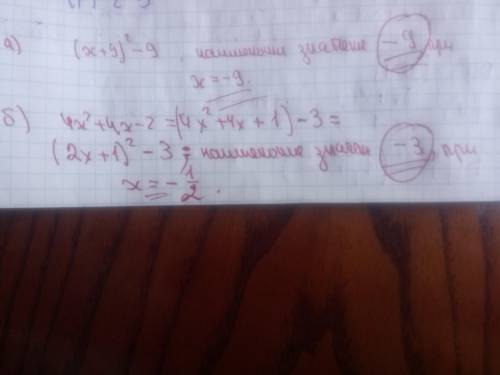 а) (x+9)²-9, наименьшее значение -9 при
x=-9.
б) 4x²+4x-2=(4x²+4x+1)-3=
(2x+1)²-3; наименьшее значен -3, при
x=-1/2.